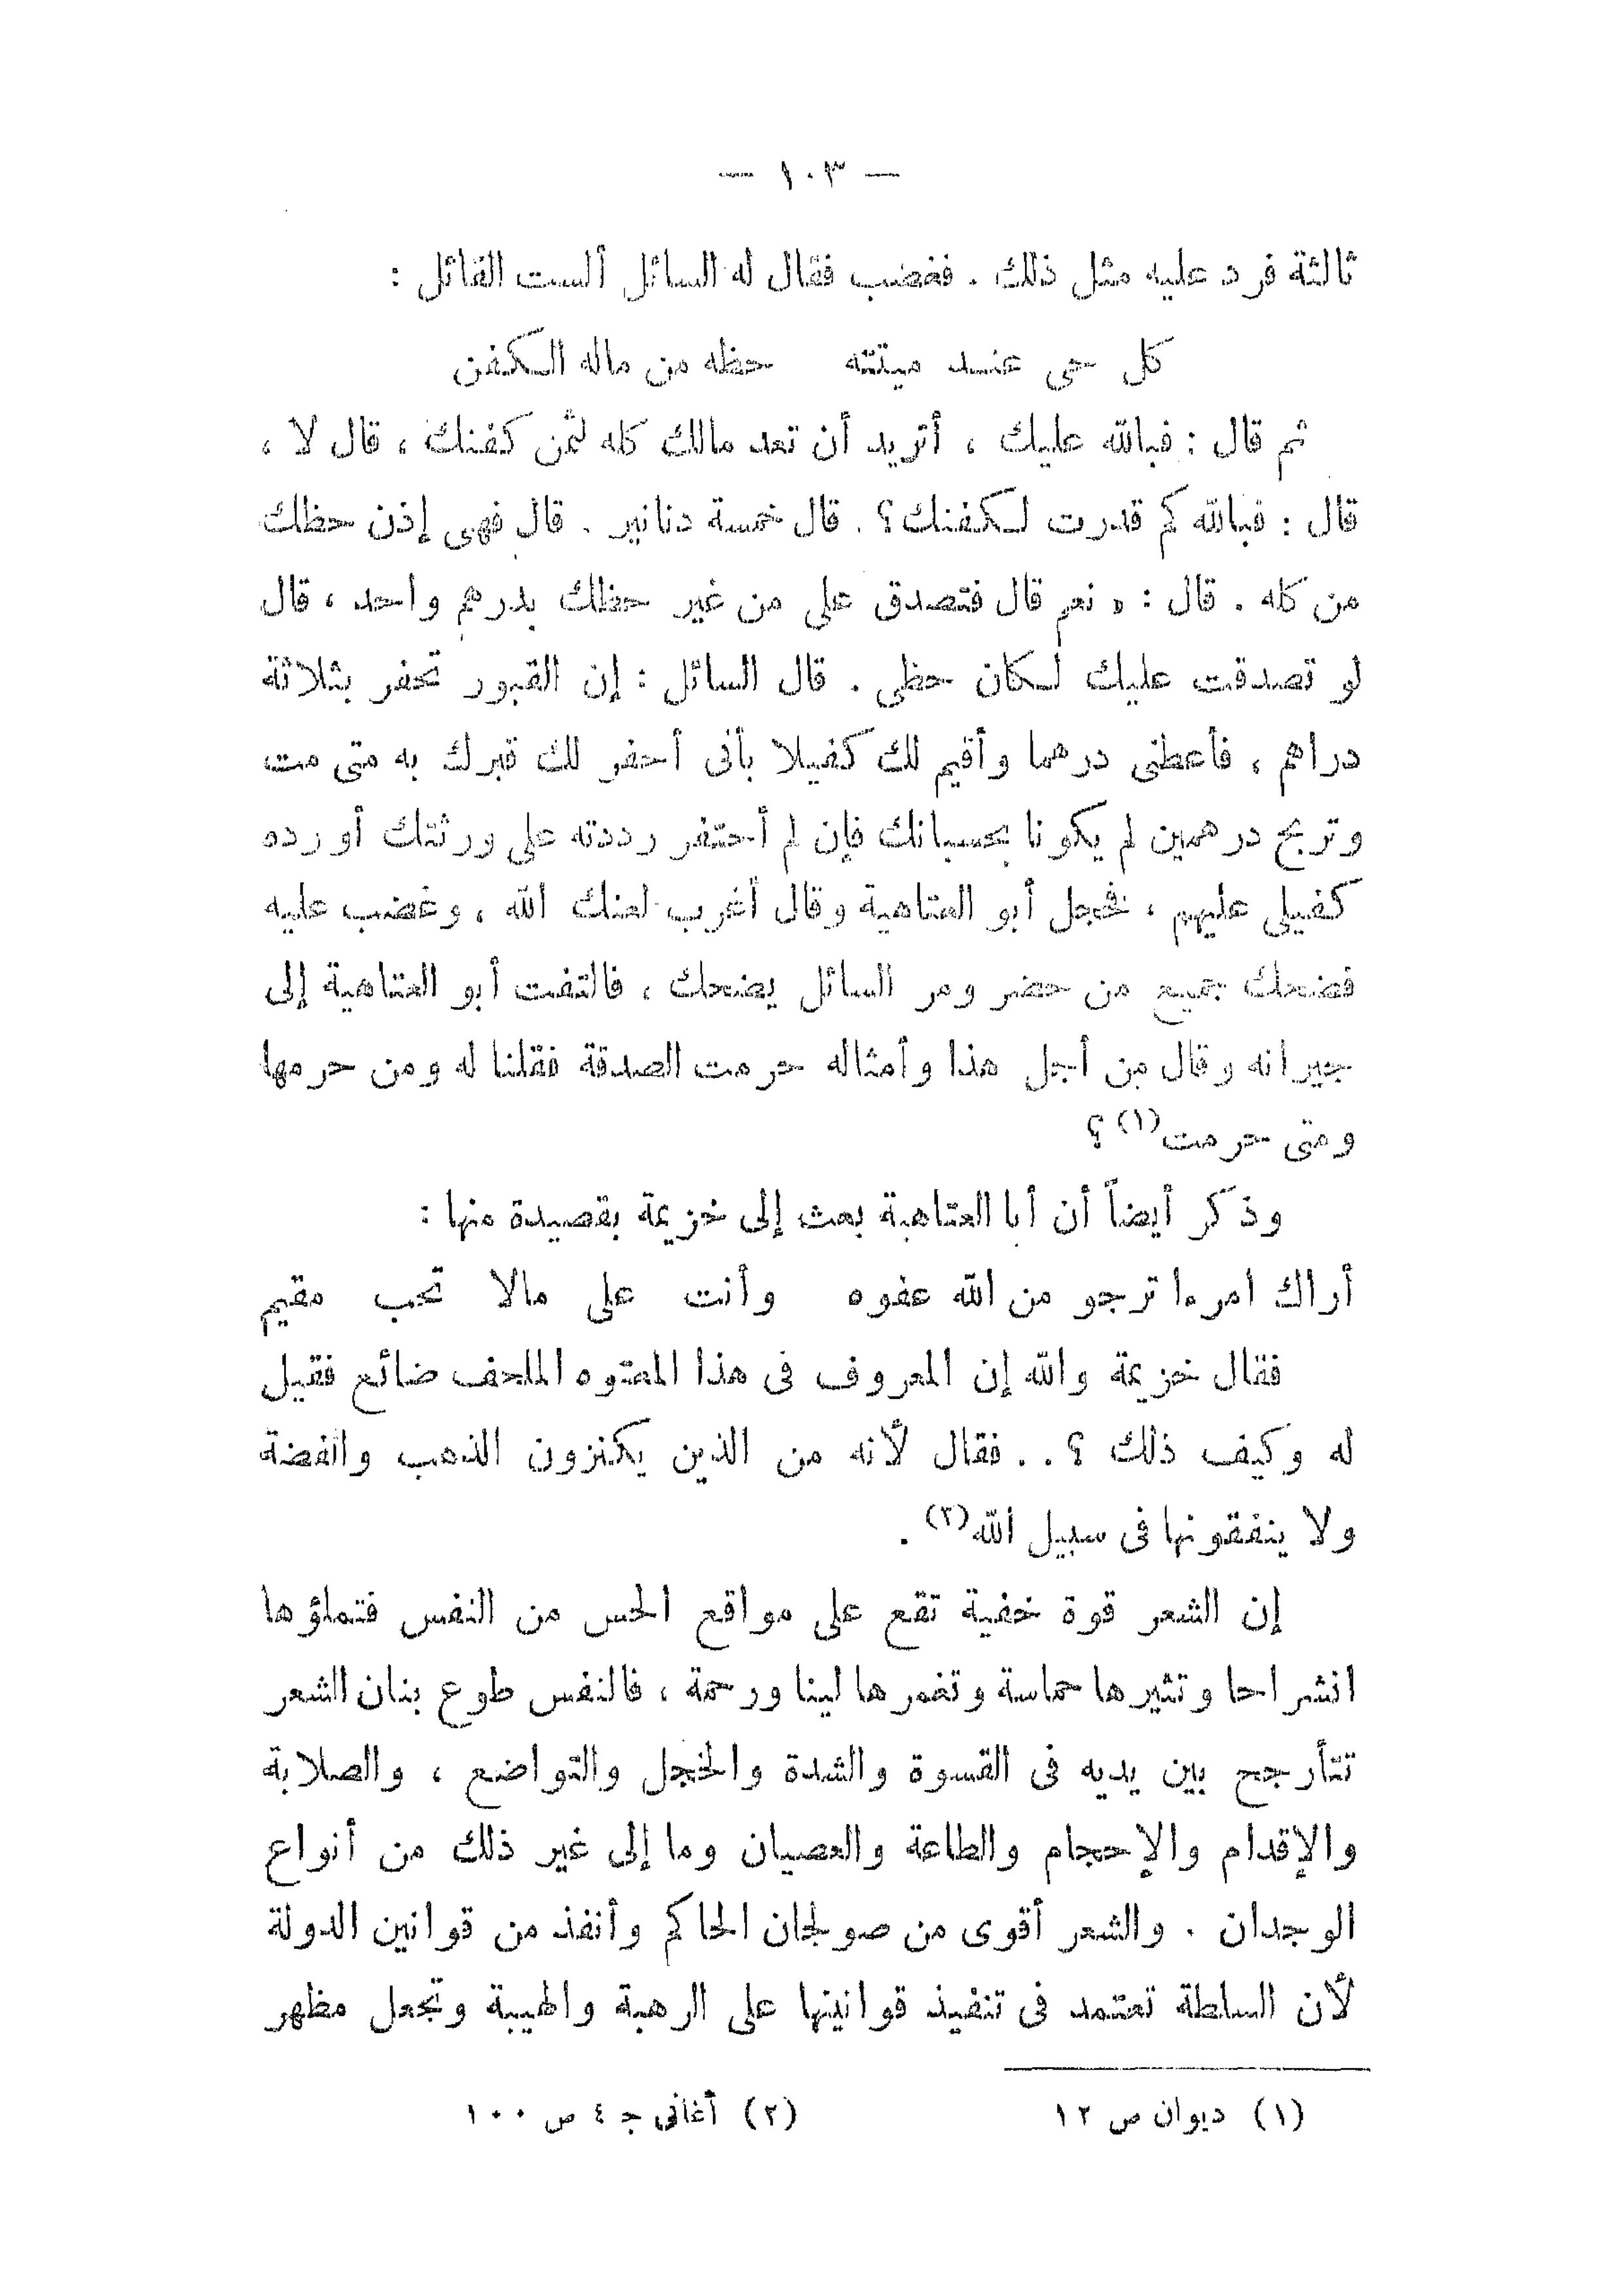 — ١٠٣ —
ثالثة فرد عليه مثل ذلك . فغضب فقال له السائل ألست القائل :
كل حى عنـد ميتته حظه من ماله الـكفن
ثم قال : فبالله عليك ، أتريد أن تعد مالك كله لثمن كفنك ، قال لا ،
قال : فبالله كم قدرت لـكفنك ؟ . قال خمسة دنانير . قال فهى إذن حظك
من كله . قال : « نعم قال فتصدق على من غير حظك بدرهم واحد ، قال
لو تصدقت عليك لـكان حظى . قال السائل : إن القبور تحفر بثلاثة
دراهم ، فأعطنى درهما وأقيم لك كفيلا بأنى أحفر لك قبرك به متى مت
وتربح درهمين لم يكونا بحسبانك فإن لم أحتفر رددته على ورثتك أو رده
كفيلى عليهم ، فخجل أبو العتاهية وقال أغرب لعنك الله ، وغضب عليه
فضحك جميع من حضر ومر السائل يضحك ، فالتفت أبو العتاهية إلى
جيرانه وقال من أجل هذا وأمثاله حرمت الصدقة فقلنا له ومن حرمها
ومتى حرمت(١) ؟
وذكر أيضاً أن أبا العتاهية بعث إلى خزيمة بقصيدة منها :
أراك امرءا ترجو من الله عفوه وأنت على مالا تحب مقيم
فقال خزيمة والله إن المعروف فى هذا المعتوه الملحف ضائع فقيل
له وكيف ذلك ؟ . . فقال لأنه من الذين يكنزون الذهب والفضة
ولا ينفقونها فى سبيل الله(٢) .
إن الشعر قوة خفية تقع على مواقع الحس من النفس فتملؤها
انشراحا وتثيرها حماسة وتغمرها لينا ورحمة ، فالنفس طوع بنان الشعر
تتأرجح بين يديه فى القسوة والشدة والخجل والتواضع ، والصلابة
والإقدام والإحجام والطاعة والعصيان وما إلى غير ذلك من أنواع
الوجدان . والشعر أقوى من صولجان الحاكم وأنفذ من قوانين الدولة
لأن السلطة تعتمد فى تنفيذ قوانينها على الرهبة والهيبة وتجعل مظهر
(١) ديوان ص ١٢ (٢) أغانى ج ٤ ص ١٠٠